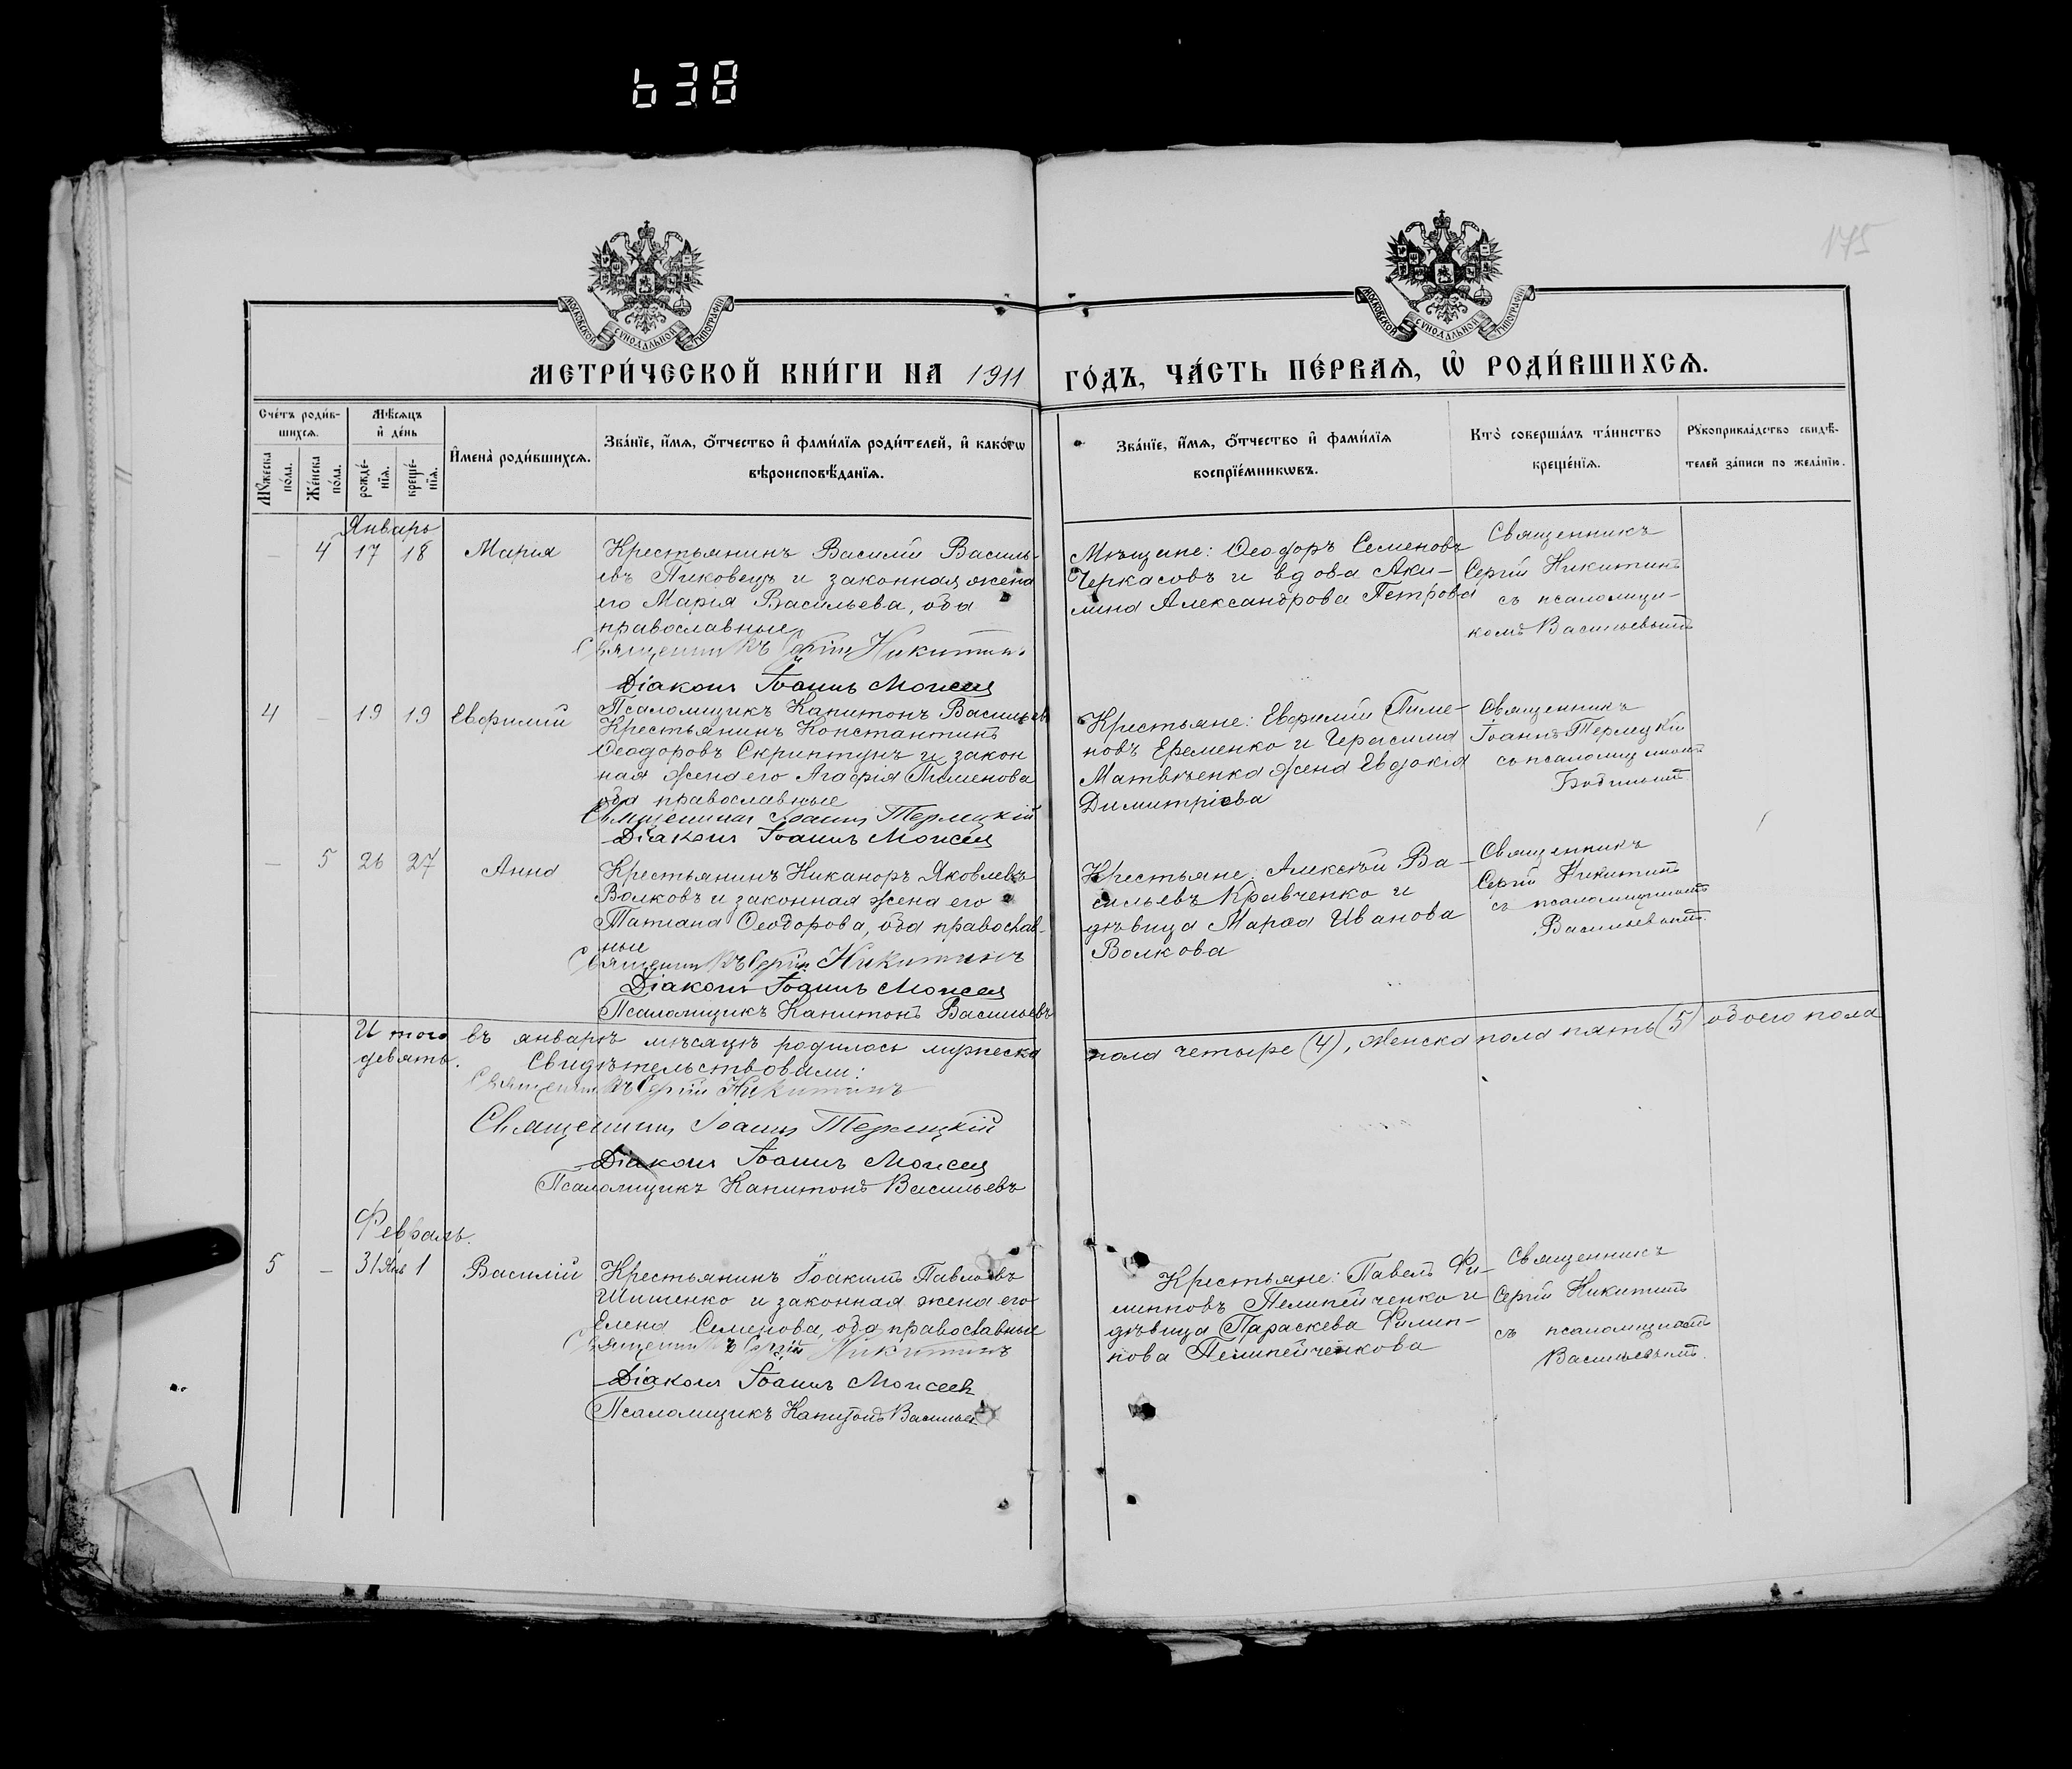 638
175
МОСКОВСКОЙ СѴНОДАЛЬНОЙ ТИПОГРАФІИ
МОСКОВСКОЙ СѴНОДАЛЬНОЙ ТИПОГРАФІИ
МЕТРИ́ЧЕСКОЙ КНИ́ГИ НА 1911 ГО́ДЪ, ЧА́СТЬ ПЕ́РВАѦ, Ѡ҆ РОДИ́ВШИХСѦ.
Сче́тъ роди́в-
шихсѧ.
Мꙋ́жеска по́ла.
Же́нска по́ла.
Мѣ́сѧцъ
и҆ де́нь
рожде́-
нїѧ.
креще́-
нїѧ.
И҆мена̀ роди́вшихсѧ.
Зва́нїе, и҆́мѧ, ѻ҆́тчество и҆ фами́лїѧ роди́телей, и҆ како́гѡ
вѣроисповѣ́данїѧ.
Зва́нїе, и҆́мѧ, ѻ҆́тчество и҆ фами́лїѧ
воспрїе́мникѡвъ.
Кто̀ соверша́лъ та́инство
креще́нїѧ.
Рꙋкоприкла́дство свидѣ́-
телей за́писи по жела́нїю.
Январь
— 4 17 18 Марія
Крестьянинъ Василій Василь-
евъ Пиковецъ и законная жена
его Марія Васильева, оба
православные
Священникъ Сергій Никитинъ
Діаконъ Іоаннъ Моисеев
Псаломщикъ Капитонъ Васильев
Мѣщане: Ѳеодоръ Семеновъ
Черкасовъ и вдова Аки-
лина Александрова Петрова
Священникъ
Сергій Никитинъ
съ псаломщи-
комъ Васильевымъ
4 — 19 19 Евфимій
Крестьянинъ Константинъ
Ѳеодоровъ Скриптунъ и закон
ная жена его Агафія Пименова
оба православные
Священникъ Іоаннъ Терлецкій
Діаконъ Іоаннъ Моисеев
Крестьяне: Евфимій Пиме-
новъ Еременко и Герасима
Матвѣенка жена Евдокія
Димитріева
Священникъ
Іоаннъ Терлецкій
съ псаломщикомъ
— 5 26 27 Анна
Крестьянинъ Никаноръ Яковлевъ
Волковъ и законная жена его
Татіана Ѳеодорова, оба православ-
ные
Священникъ Сергій Никитинъ
Діаконъ Іоаннъ Моисеев
Псаломщикъ Капитонъ Васильевъ
Крестьяне: Алексѣй Ва-
сильевъ Кравченко и
дѣвица Марѳа Иванова
Волкова
Священникъ
Сергій Никитинъ
съ псаломщикомъ
Васильевымъ.
Итого въ январѣ мѣсяцѣ родилось мужеска пола четыре (4), женска пола пять (5) обоего пола
девять. Свидѣтельствовали:
Священникъ Сергій Никитинъ
Священникъ Іоаннъ Терлецкій
Діаконъ Іоаннъ Моисеев
Псаломщикъ Капитонъ Васильевъ
Февраль.
5 — 31 Янв 1 Василій
Крестьянинъ Іоакимъ Павловъ
Шишенко и законная жена его
Елена Семенова, оба православные
Священникъ Сергій Никитинъ
Діаконъ Іоаннъ Моисеев
Псаломщикъ Капитонъ Васильев
Крестьяне: Павелъ Фи-
липповъ Пелипейченко и
дѣвица Параскева Филип-
пова Пелипейченкова
Священникъ
Сергій Никитинъ
съ псаломщикомъ
Васильевымъ.